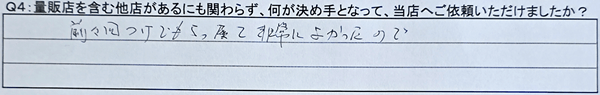 Q4：量販店を含む他店があるにも関わらず、何が決め手となって、当店へご依頼いただけましたか？
前々回つけてもらって非常によかったので